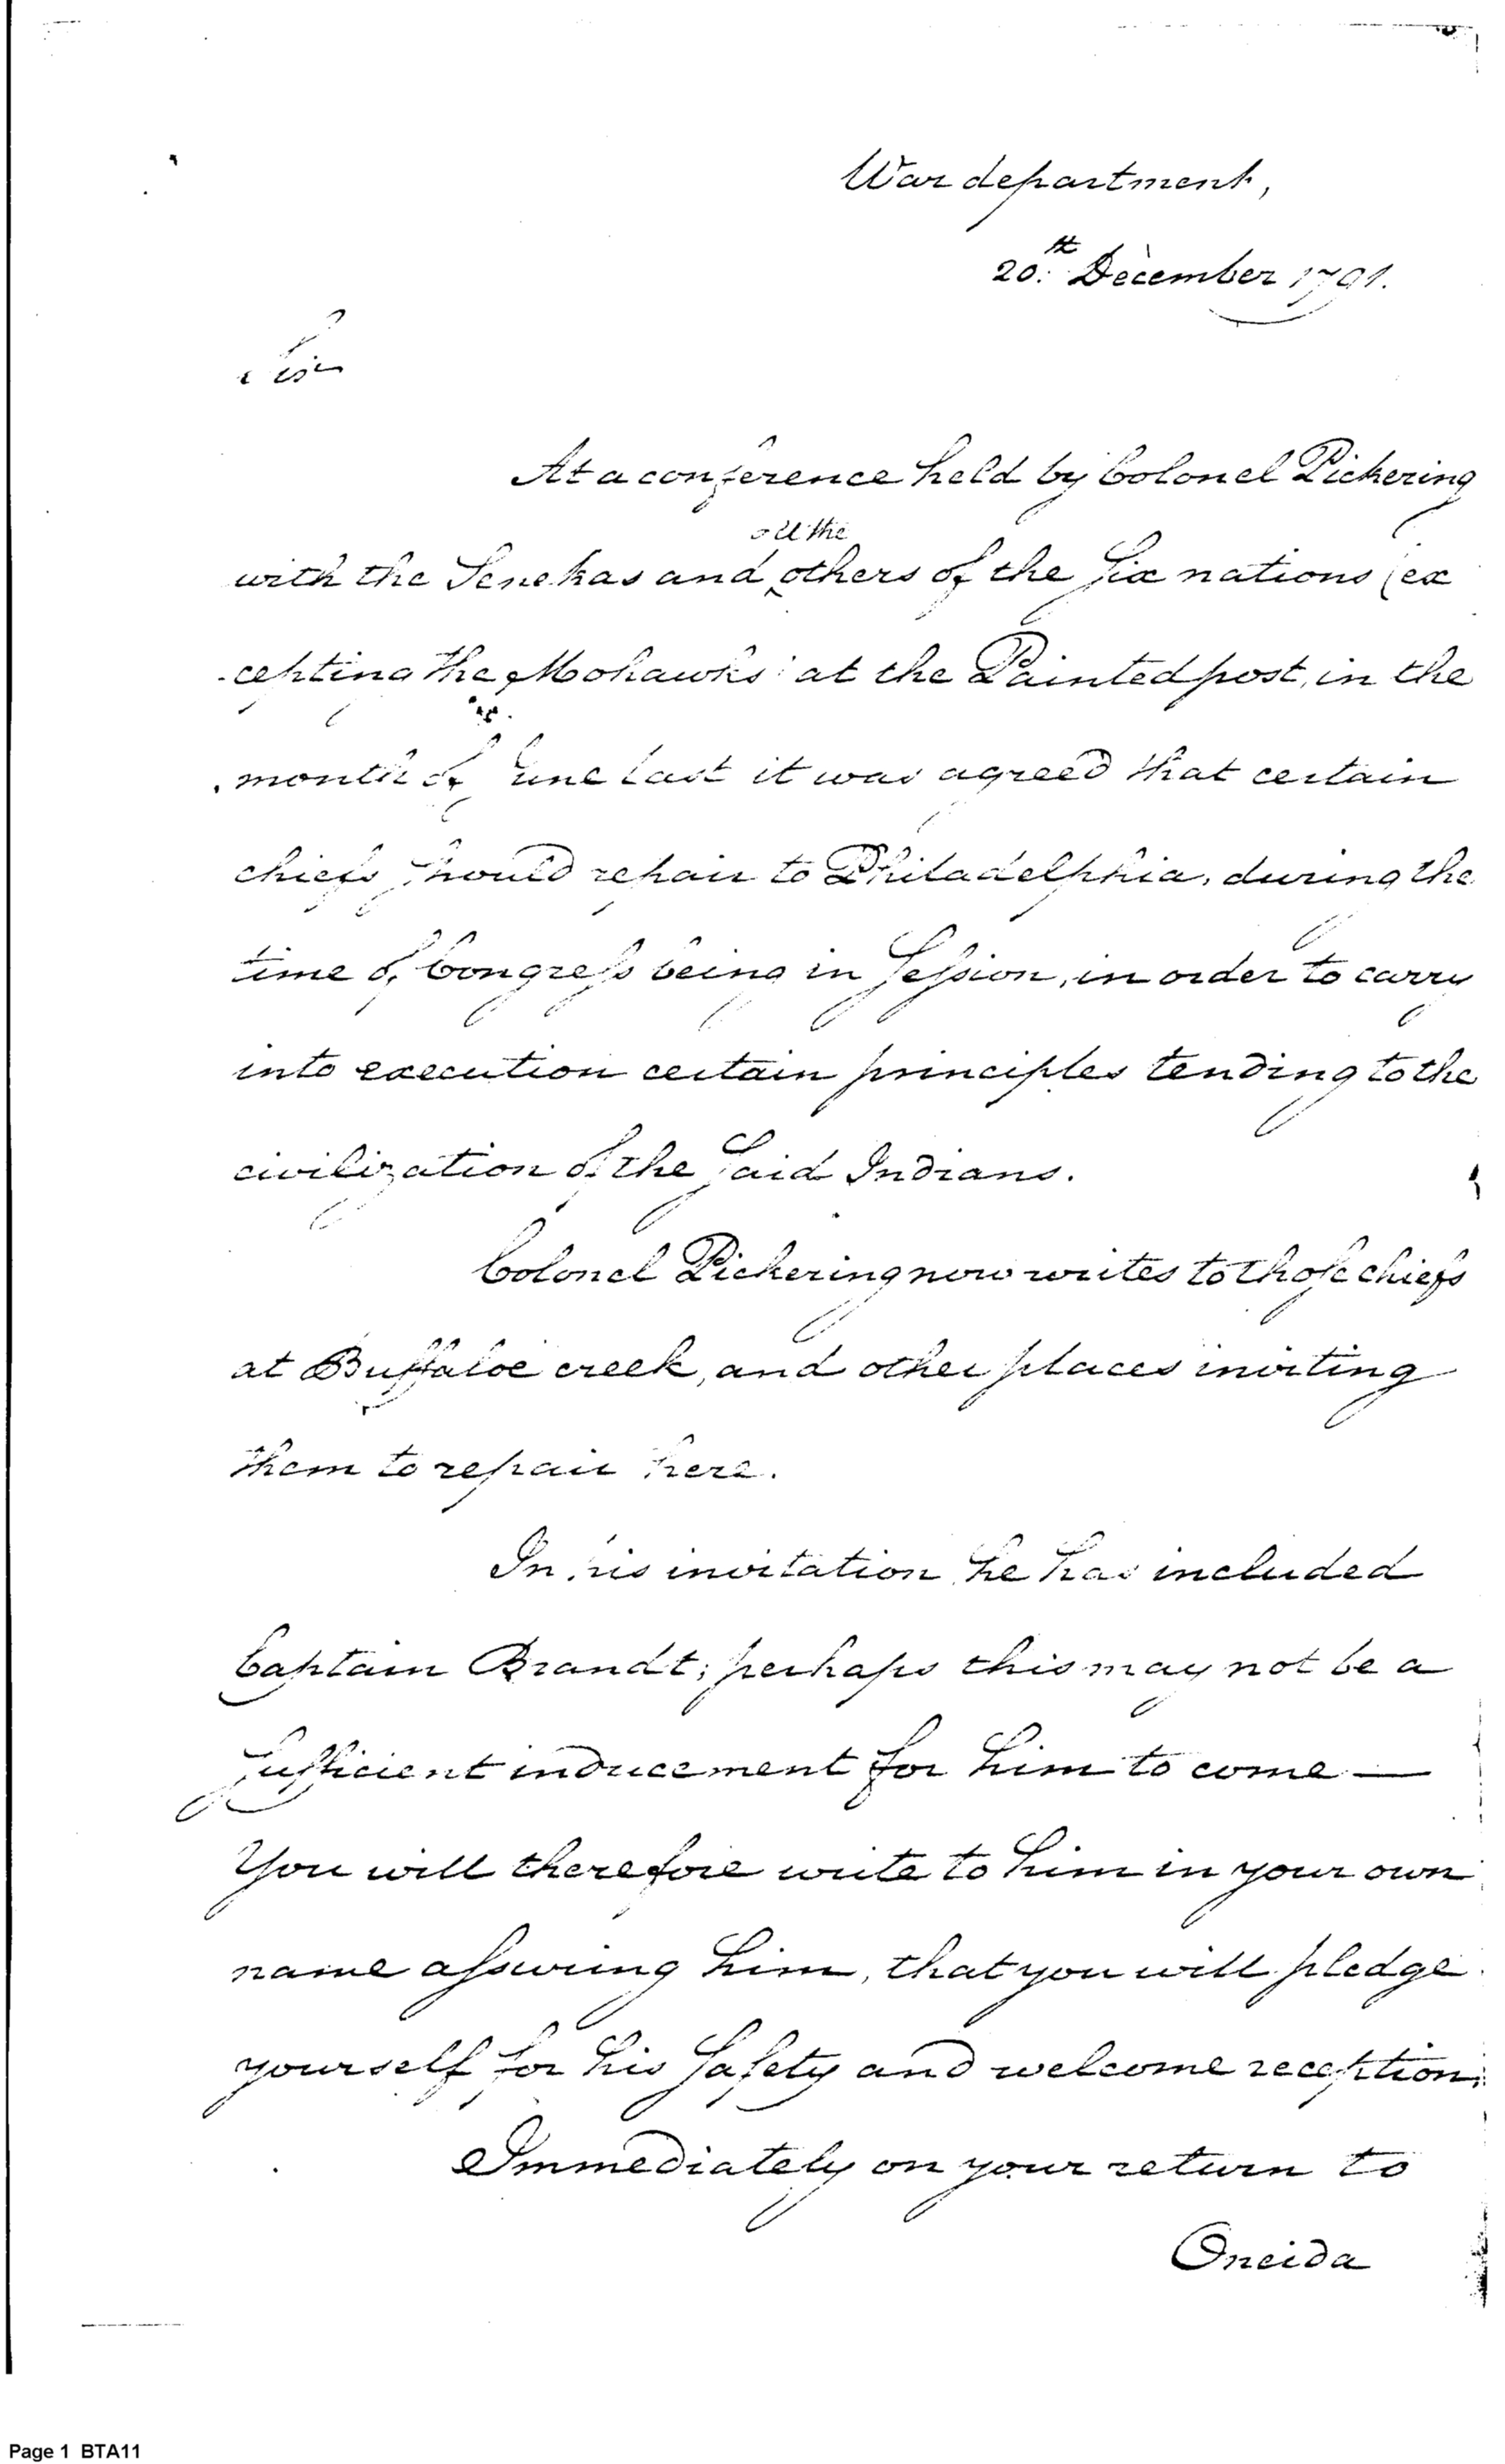 War department,
20.th December 1791.
Sir
At a conference held by Colonel Pickering
all the
with the Senekas and ^ others of the Six nations (ex
-cepting the Mohawks) at the Painted post, in the
month of June last it was agreed that certain
chiefs should repair to Philadelphia, during the
time of Congress being in Session, in order to carry
into execution certain principles tending to the
civilization of the said Indians.
Colonel Pickering now writes to those chiefs
at Buffaloe creek, and other places inviting
them to repair here.
In his invitation he has included
Captain Brandt; perhaps this may not be a
sufficient inducement for him to come —
You will therefore write to him in your own
name assuring him, that you will pledge
yourself for his safety and welcome reception.
Immediately on your return to
Oneida
Page 1 BTA11